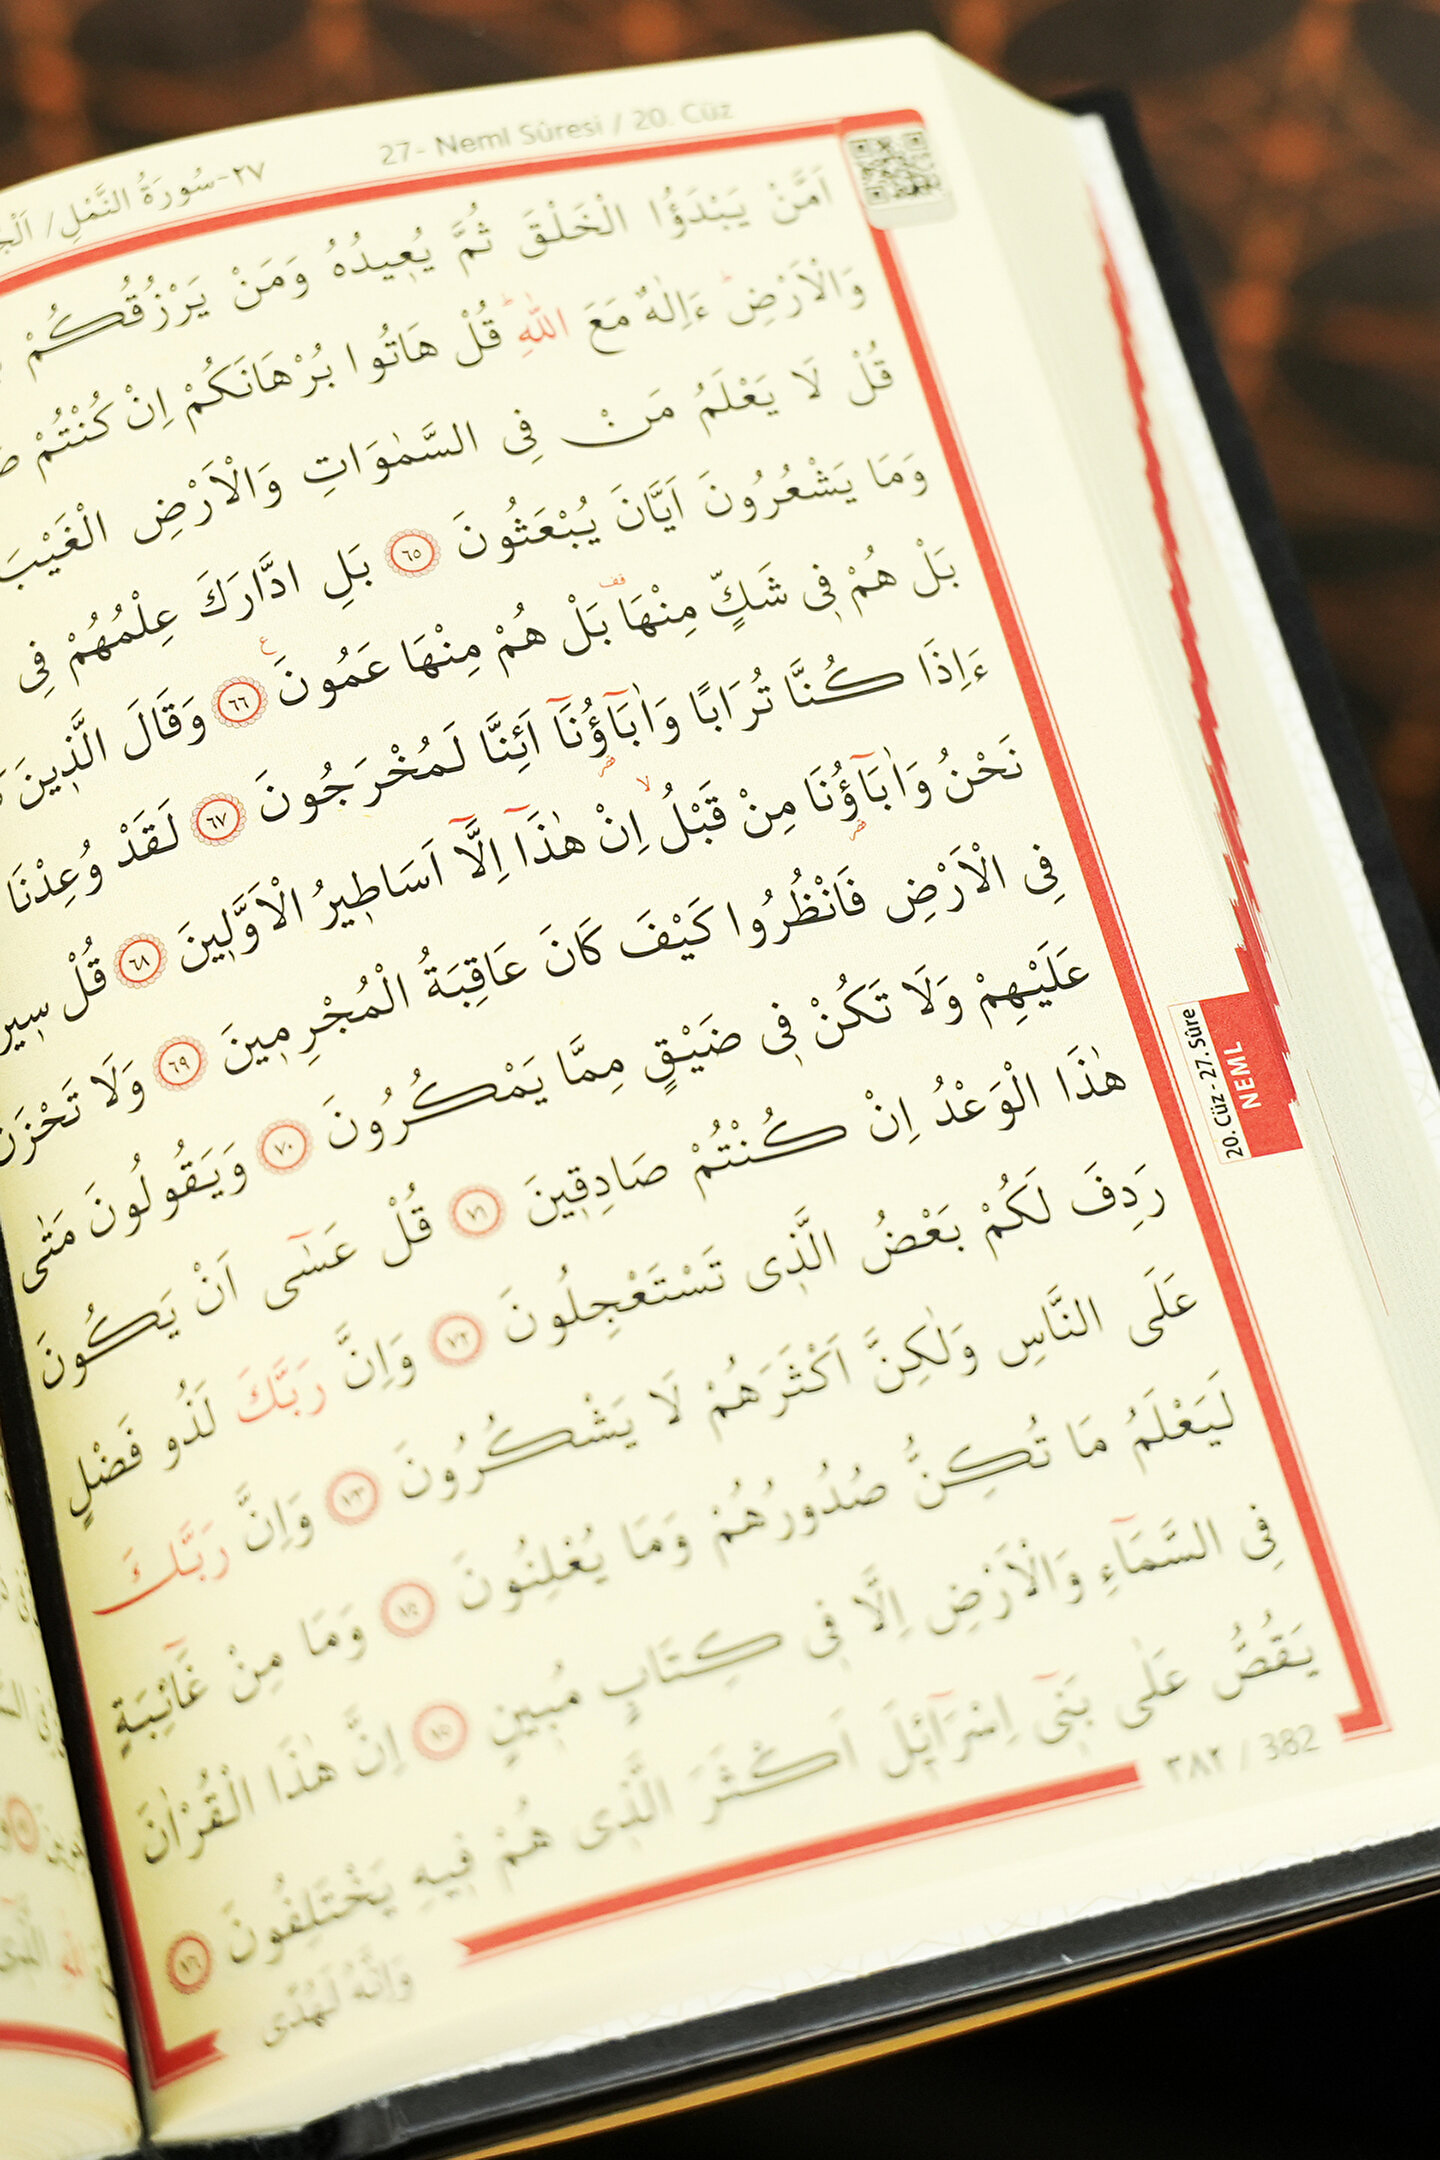 ٢٧-سُورَةُ النَّمْلِ/
27- Neml Sûresi / 20. Cüz
اَمَّنْ يَبْدَؤُا الْخَلْقَ ثُمَّ يُعٖيدُهُ وَمَنْ يَرْزُقُكُمْ
وَالْاَرْضِؕ ءَاِلٰهٌ مَعَ اللّٰهِؕ قُلْ هَاتُوا بُرْهَانَكُمْ اِنْ كُنْتُمْ
قُلْ لَا يَعْلَمُ مَنْ فِى السَّمٰوَاتِ وَالْاَرْضِ الْغَيْبَ
وَمَا يَشْعُرُونَ اَيَّانَ يُبْعَثُونَ ٦٥ بَلِ ادَّارَكَ عِلْمُهُمْ فِى
بَلْ هُمْ فٖى شَكٍّ مِنْهَا بَلْ هُمْ مِنْهَا عَمُونَ ٦٦ وَقَالَ الَّذٖينَ
ءَاِذَا كُنَّا تُرَابًا وَاٰبَآؤُنَآ اَئِنَّا لَمُخْرَجُونَ ٦٧ لَقَدْ وُعِدْنَا
نَحْنُ وَاٰبَآؤُنَا مِنْ قَبْلُ اِنْ هٰذَآ اِلَّآ اَسَاطٖيرُ الْاَوَّلٖينَ ٦٨ قُلْ
فِى الْاَرْضِ فَانْظُرُوا كَيْفَ كَانَ عَاقِبَةُ الْمُجْرِمٖينَ ٦٩ وَلَا تَحْزَنْ
عَلَيْهِمْ وَلَا تَكُنْ فٖى ضَيْقٍ مِمَّا يَمْكُرُونَ ٧٠ وَيَقُولُونَ مَتٰى
هٰذَا الْوَعْدُ اِنْ كُنْتُمْ صَادِقٖينَ ٧١ قُلْ عَسٰٓى اَنْ يَكُونَ
رَدِفَ لَكُمْ بَعْضُ الَّذٖى تَسْتَعْجِلُونَ ٧٢ وَاِنَّ رَبَّكَ لَذُو فَضْلٍ
عَلَى النَّاسِ وَلٰكِنَّ اَكْثَرَهُمْ لَا يَشْكُرُونَ ٧٣ وَاِنَّ رَبَّكَ
لَيَعْلَمُ مَا تُكِنُّ صُدُورُهُمْ وَمَا يُعْلِنُونَ ٧٤ وَمَا مِنْ غَٓائِبَةٍ
فِى السَّمَٓاءِ وَالْاَرْضِ اِلَّا فٖى كِتَابٍ مُبٖينٍ ٧٥ اِنَّ هٰذَا الْقُرْاٰنَ
يَقُصُّ عَلٰى بَنٖٓى اِسْرَٓائٖلَ اَكْثَرَ الَّذٖى هُمْ فٖيهِ يَخْتَلِفُونَ ٧٦
وَاِنَّهُ لَهُدًى
٣٨٢ / 382
20. Cüz - 27. Sûre
NEML